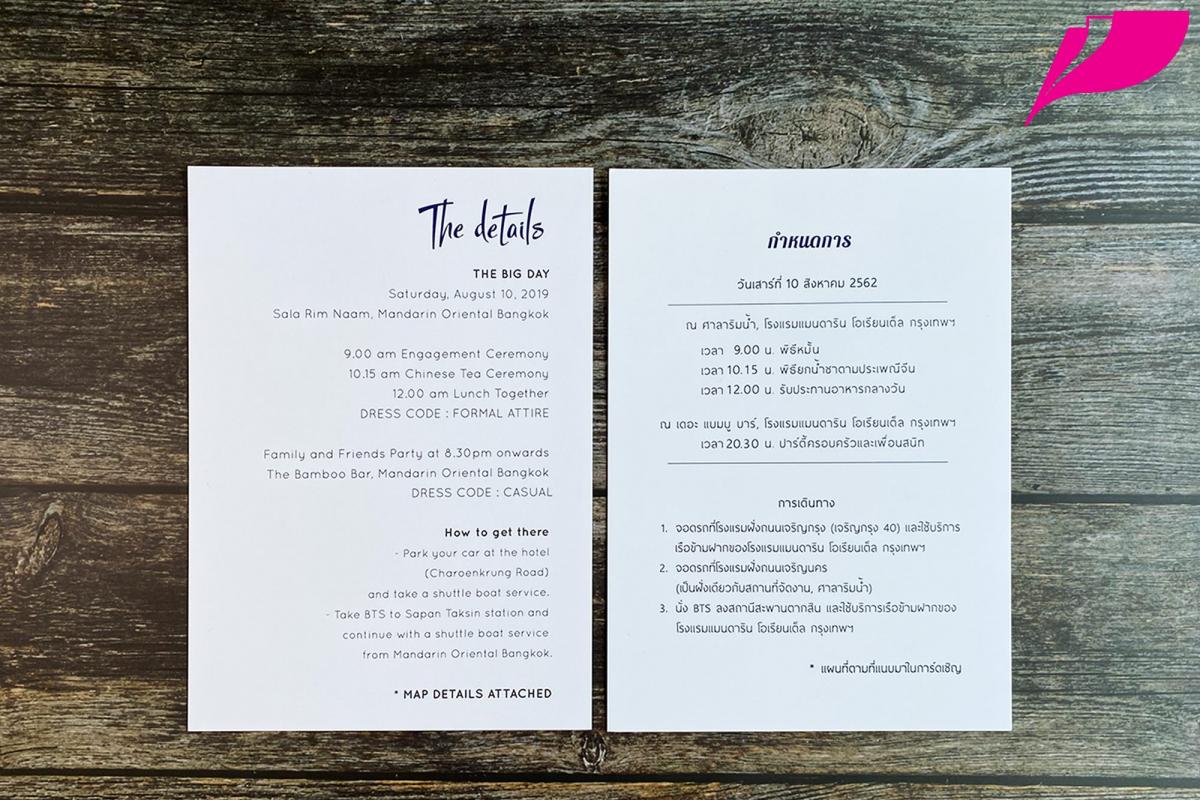 The details
THE BIG DAY
Saturday, August 10, 2019
Sala Rim Naam, Mandarin Oriental Bangkok
9.00 am Engagement Ceremony
10.15 am Chinese Tea Ceremony
12.00 am Lunch Together
DRESS CODE : FORMAL ATTIRE
Family and Friends Party at 8.30pm onwards
The Bamboo Bar, Mandarin Oriental Bangkok
DRESS CODE : CASUAL
How to get there
- Park your car at the hotel
(Charoenkrung Road)
and take a shuttle boat service.
- Take BTS to Sapan Taksin station and
continue with a shuttle boat service
from Mandarin Oriental Bangkok.
* MAP DETAILS ATTACHED
กำหนดการ
วันเสาร์ที่ 10 สิงหาคม 2562
ณ ศาลาริมน้ำ, โรงแรมแมนดาริน โอเรียนเต็ล กรุงเทพฯ
เวลา 9.00 น. พิธีหมั้น
เวลา 10.15 น. พิธียกน้ำชาตามประเพณีจีน
เวลา 12.00 น. รับประทานอาหารกลางวัน
ณ เดอะ แบมบู บาร์, โรงแรมแมนดาริน โอเรียนเต็ล กรุงเทพฯ
เวลา 20.30 น. ปาร์ตี้ครอบครัวและเพื่อนสนิท
การเดินทาง
1. จอดรถที่โรงแรมฝั่งถนนเจริญกรุง (เจริญกรุง 40) และใช้บริการ
เรือข้ามฟากของโรงแรมแมนดาริน โอเรียนเต็ล กรุงเทพฯ
2. จอดรถที่โรงแรมฝั่งถนนเจริญนคร
(เป็นฝั่งเดียวกับสถานที่จัดงาน, ศาลาริมน้ำ)
3. นั่ง BTS ลงสถานีสะพานตากสิน และใช้บริการเรือข้ามฟากของ
โรงแรมแมนดาริน โอเรียนเต็ล กรุงเทพฯ
* แผนที่ตามที่แนบมาในการ์ดเชิญ